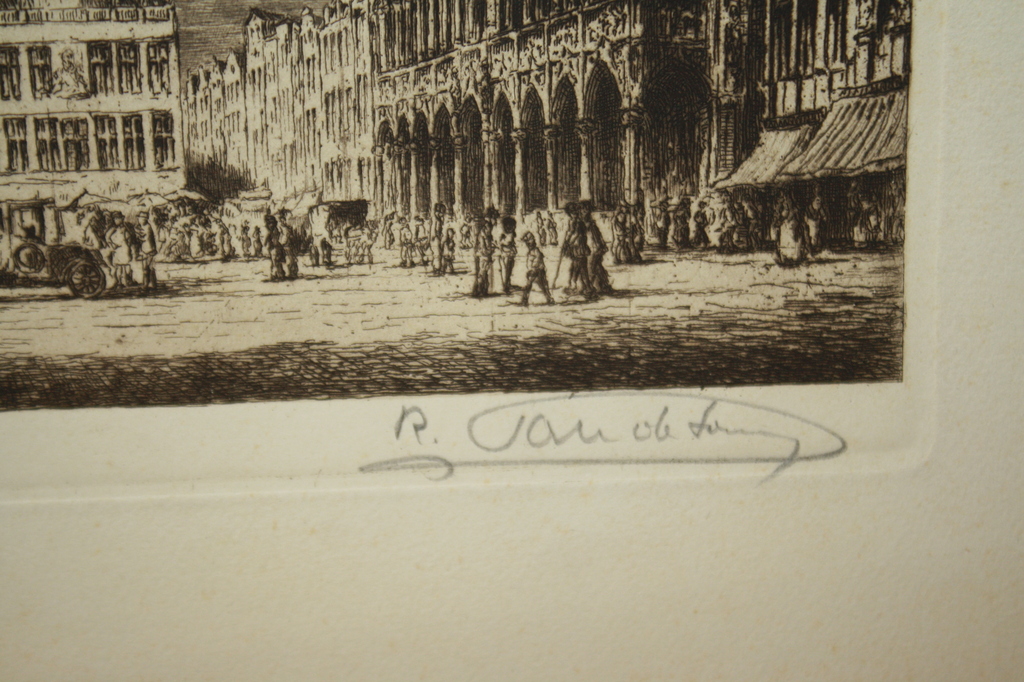 R. Van de